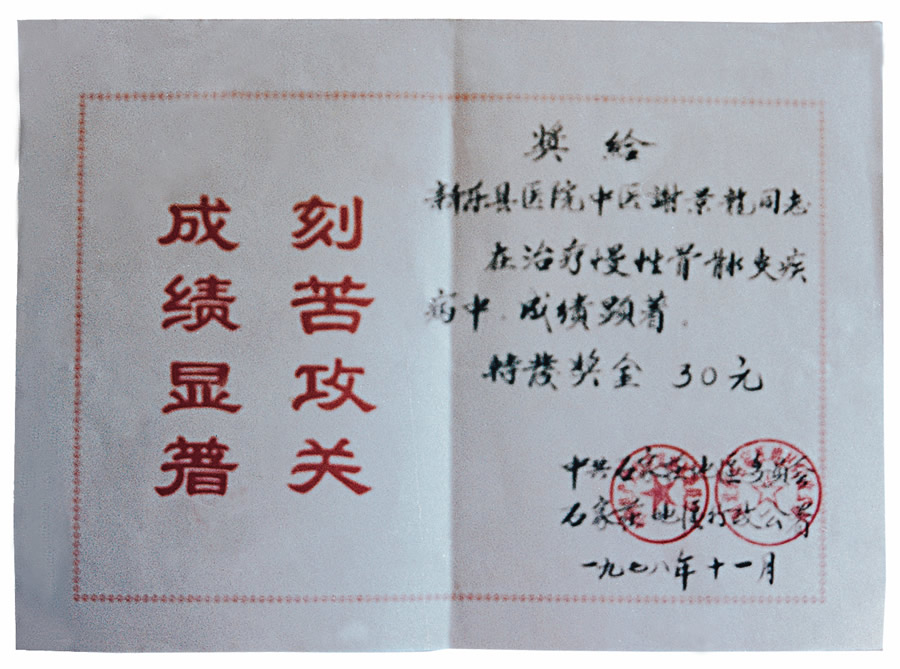 刻苦攻关
成绩显著
奖给
新乐县医院中医謝景龍同志
在治疗慢性骨髓炎疾
病中.成绩顕著.
特發奖金 30元
中共石家庄地區委員会
石家庄地區行政公署
一九七八年十一月